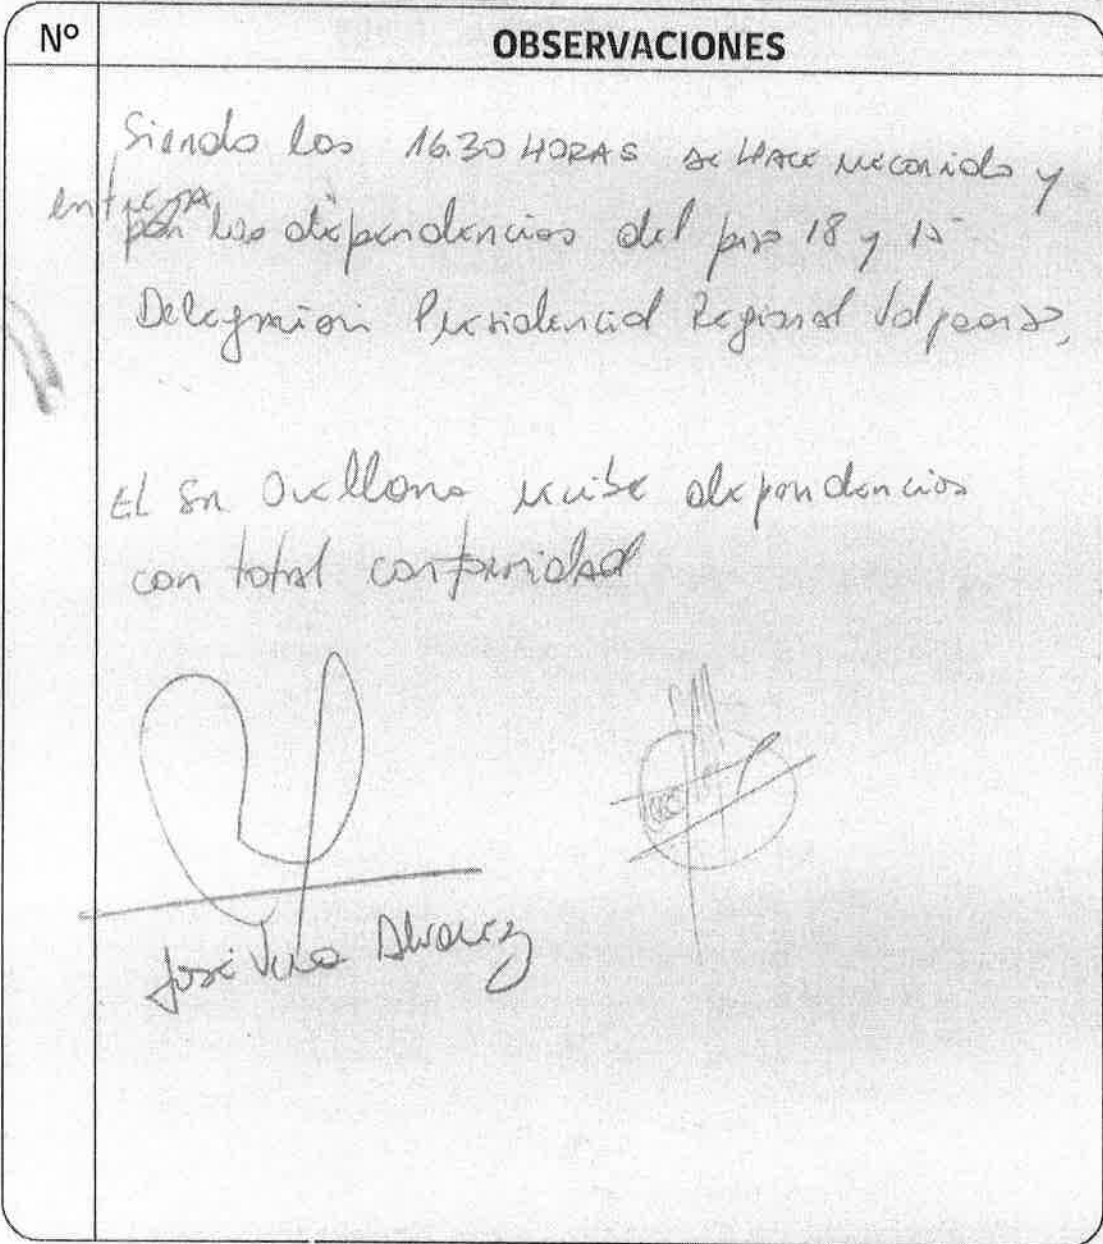 Nº
OBSERVACIONES
Siendo las 16.30 HORAS se HACE recorrido y
entrega
por las dependencias del piso 18 y
Delegacion Presidencial Regional Valparaiso,
El Sr Orellana recibe dependencias
con total conformidad
José Vera Alvarez